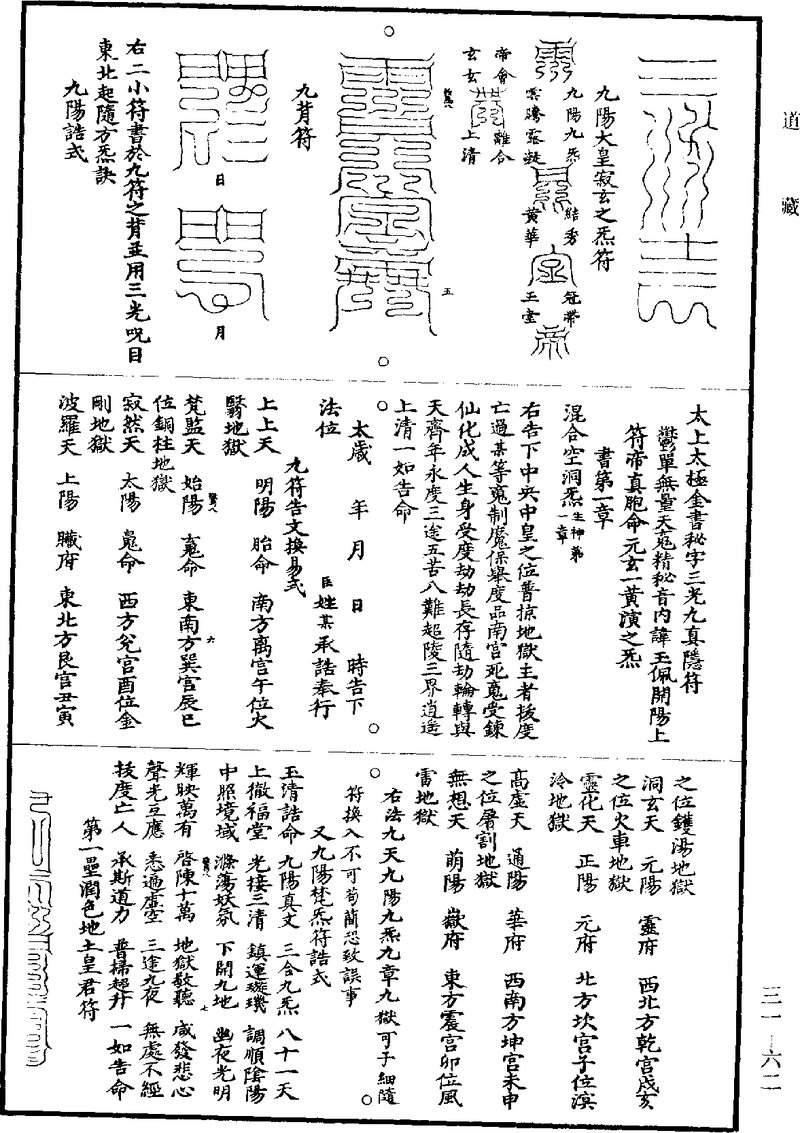 道藏
九陽大皇寂玄之炁符
九陽九炁 結秀 冠帶
雲騰露凝 黃華 王室
帝會 離合
玄玄 上清
五
九背符
日
月
右二小符書於九符之背並用三光呪日
東北起隨方炁訣
九陽誥式
太上太極金書秘字三光九真隱符
鬱單無量天兎精秘音內諱玉佩開陽上
符帝真胞命元玄一黃演之炁
書第一章
混合空洞炁生神第一章
右告下中央中皇之位普掠地獄主者拔度
亡過某等魂制魔保舉度品南宮死魂受鍊
仙化成人生身受度劫劫長存隨劫輪轉與
天齊年永度三途五苦八難超陵三界逍遙
上清一如告命
太歲 年 月 日 時告下
法位 臣姓某承誥奉行
九符告文換易式
上上天 明陽 胎命 南方离宮午位火
翳地獄
梵監天 始陽 魂命 東南方巽宮辰巳
位銅柱地獄
六
寂然天 太陽 魄命 西方兌宮酉位金
剛地獄
波羅天 上陽 臟府 東北方艮宮丑寅
之位鑊湯地獄
洞玄天 元陽 靈府 西北方乾宮戌亥
之位火車地獄
靈化天 正陽 元府 北方坎宮子位溟
泠地獄
高虛天 通陽 華府 西南方坤宮未申
之位屠割地獄
無想天 萌陽 嶽府 東方震宮卯位風
雷地獄
右法九天九陽九炁九章九獄可子細隨
符換入不可苟簡恐致誤事
又九陽梵炁符誥式
玉清誥命 九陽真文 三合九炁 八十一天
上徹福堂 光接三清 鎮運璇璣 調順陰陽
中照境域 滌蕩妖氛 下開九地 幽夜光明
輝映萬有 啓陳十萬 地獄敬聽 咸發悲心
七
聲光互應 悉遍虛空 三途九夜 無處不經
拔度亡人 承斯道力 普掃超升 一如告命
第一壘潤色地土皇君符
三一—六二